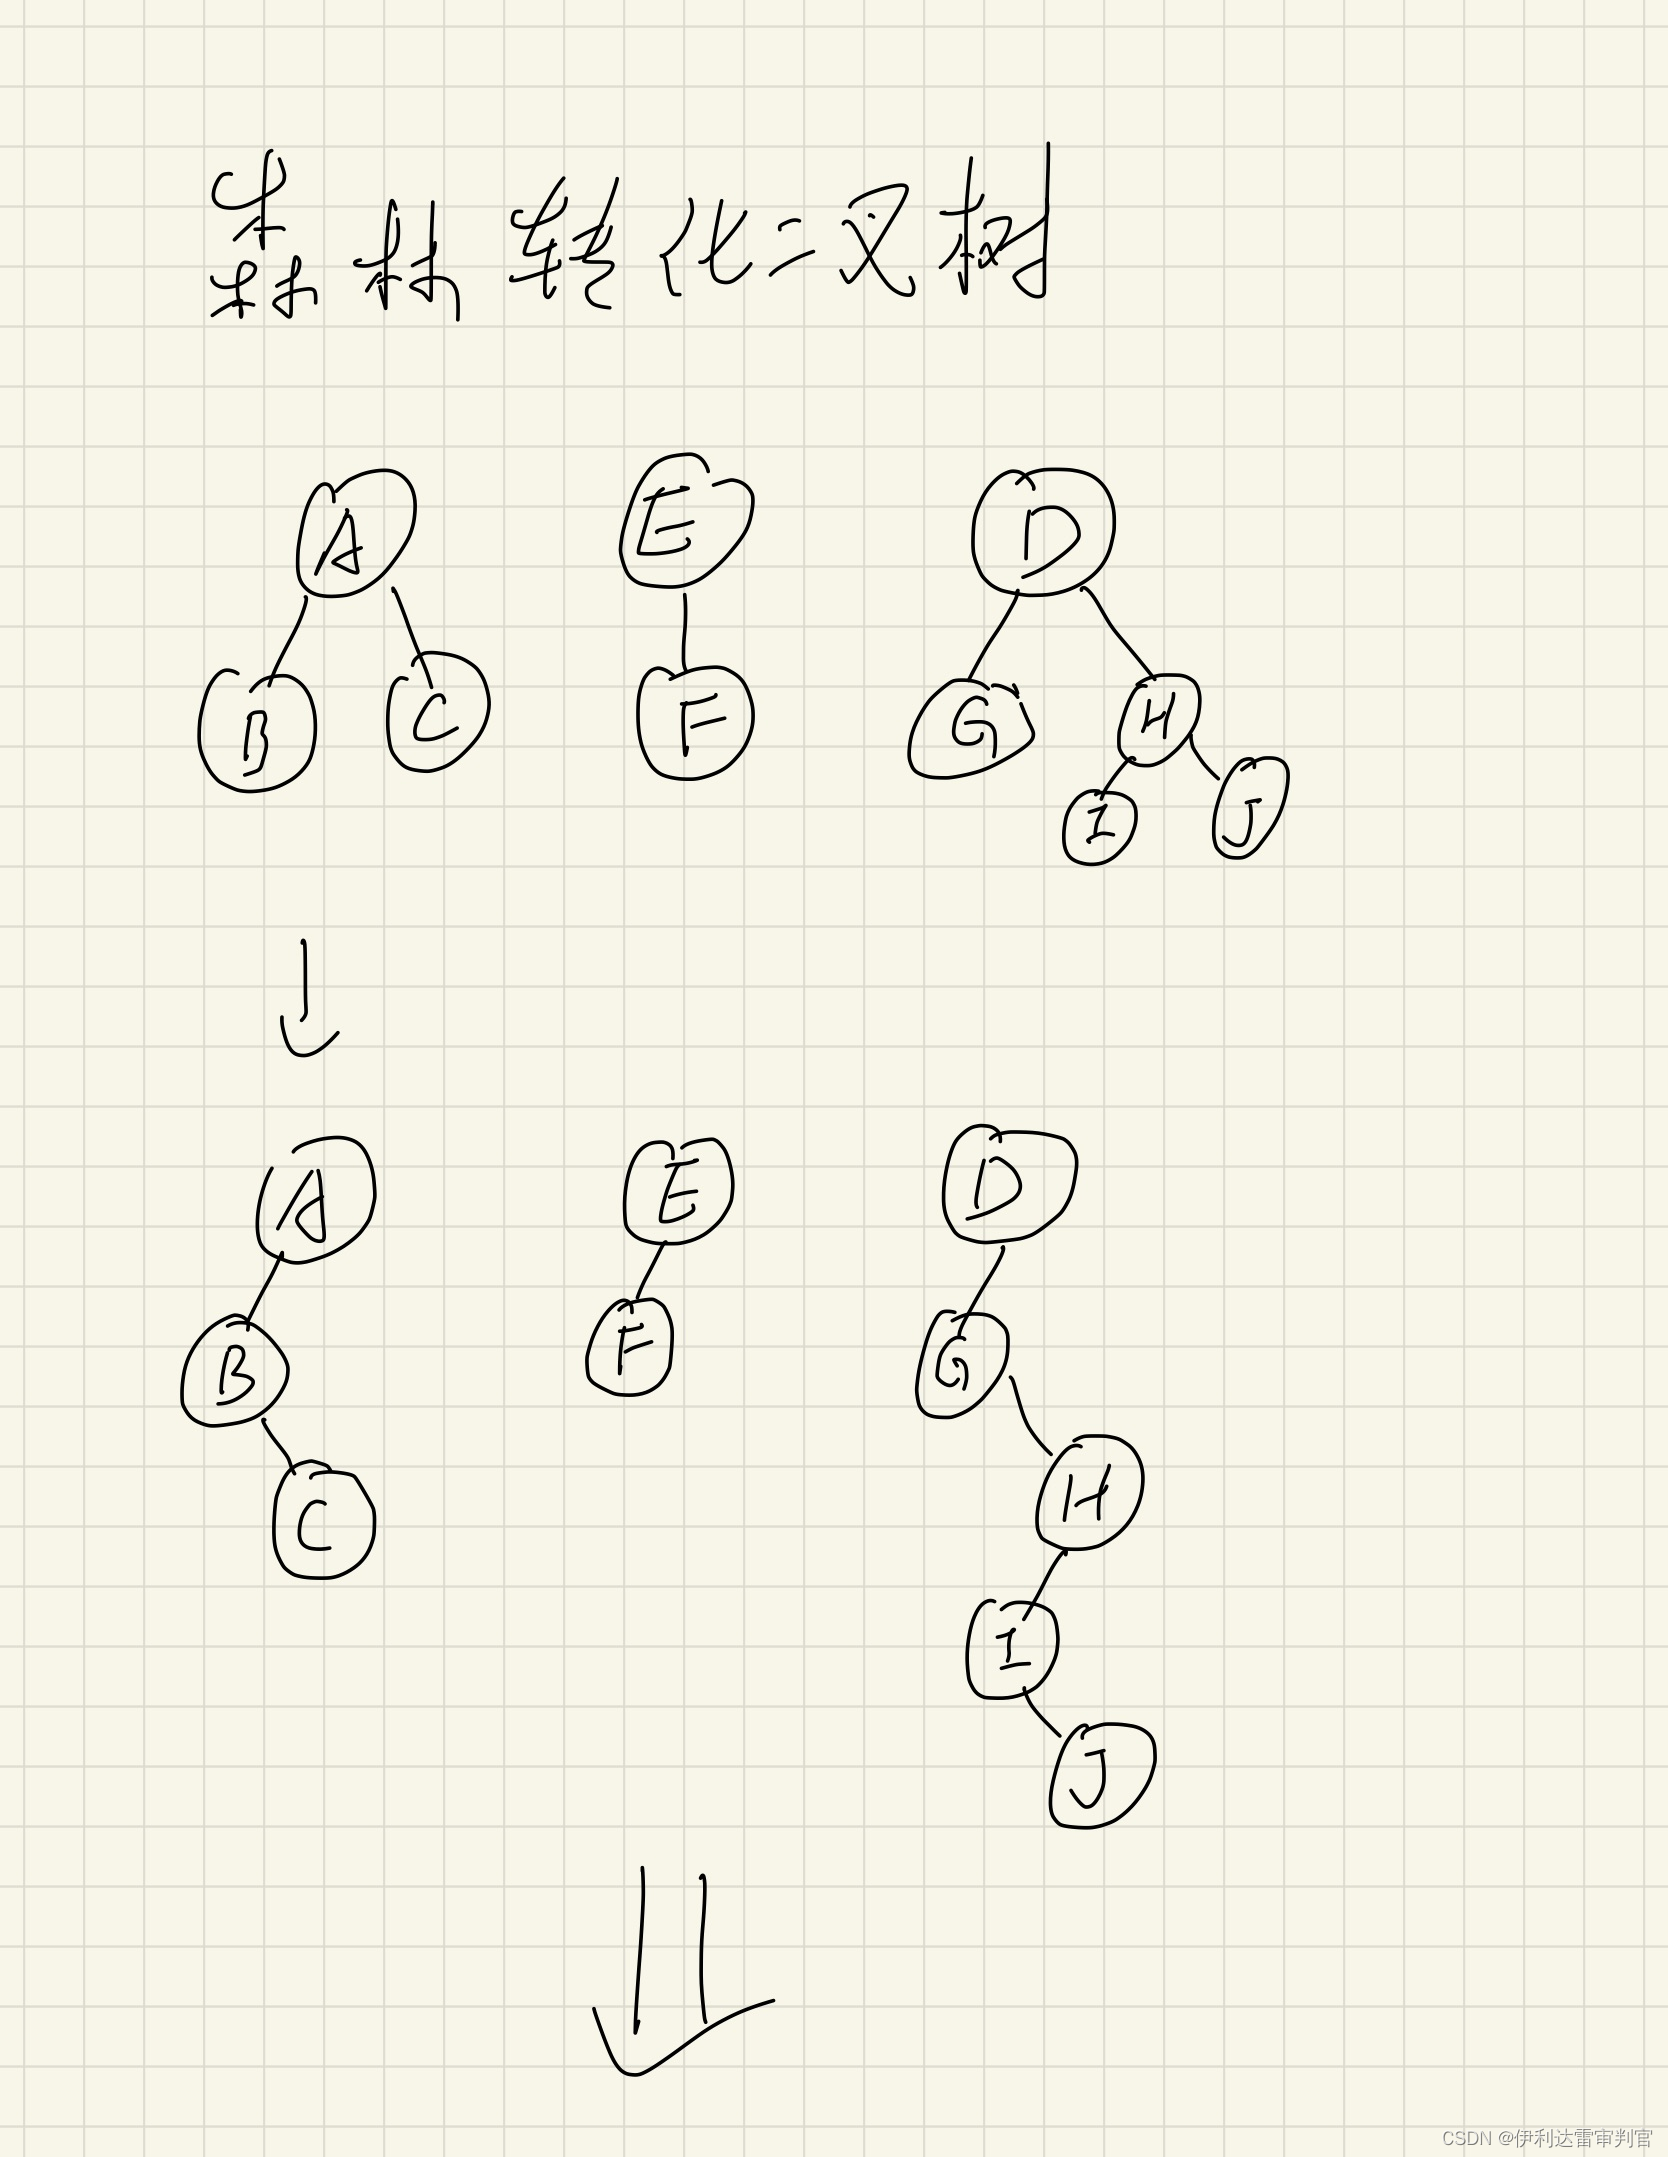 森林转化二叉树
A E D
B C F G H
I J
A E D
B F G
C H
I
J
CSDN @伊利达雷审判官